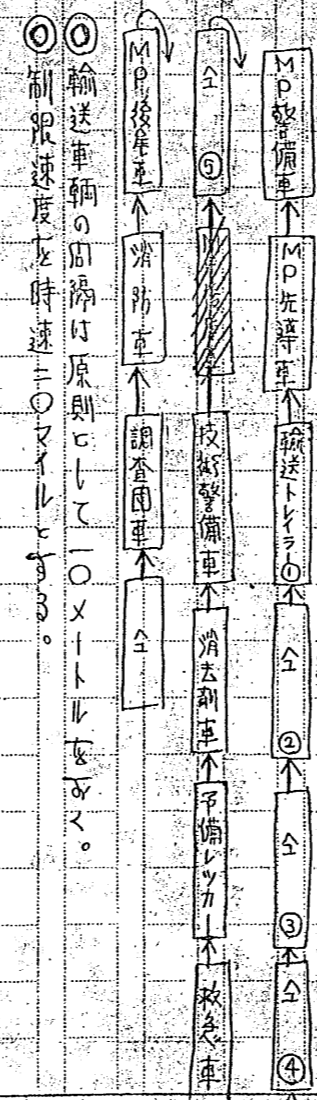 MP警備車
MP先導車
輸送トレイラー①
〃 ②
〃 ③
〃 ④
〃 ⑤
技術警備車
消去剤車
予備レッカー
救急車
MP後尾車
消防車
調査団車
〃
◎輸送車輌の間隔は原則として一〇メートルをおく。
◎制限速度を時速二〇マイルとする。